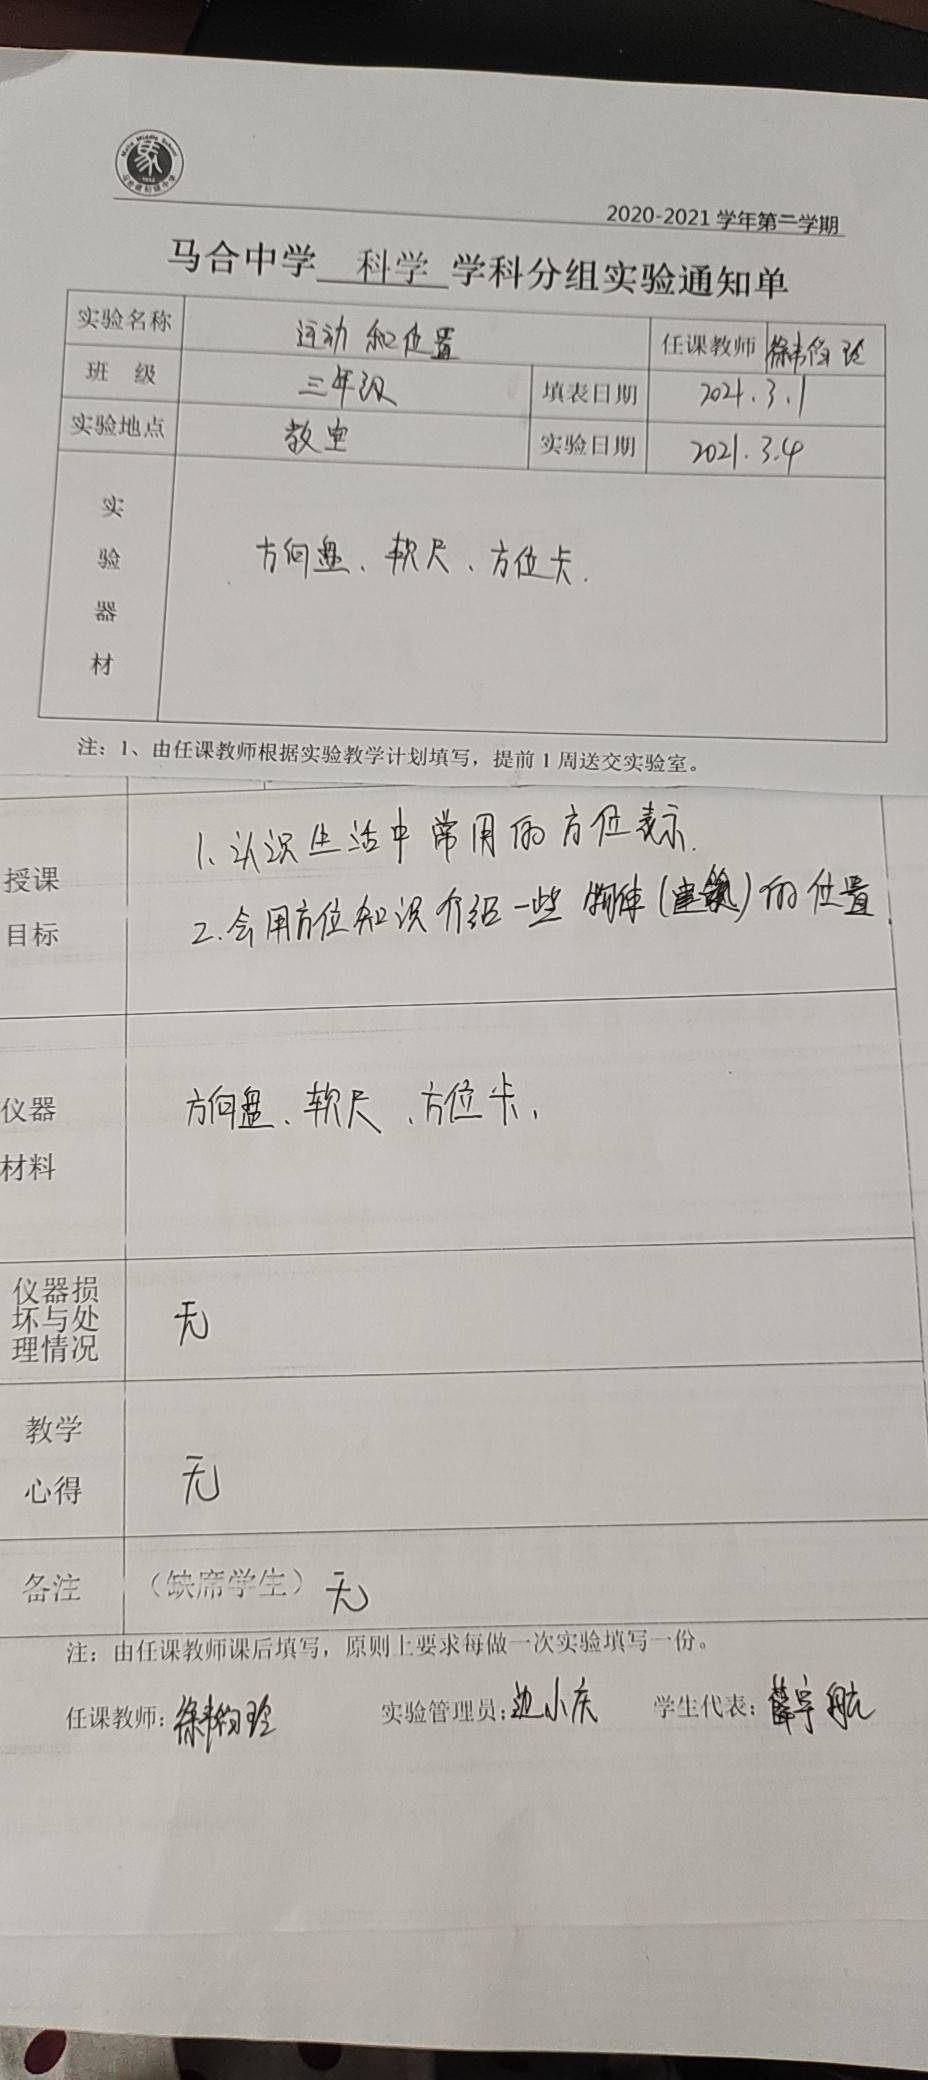 2020-2021 学年第二学期
马合中学 科学 学科分组实验通知单
实验名称 运动和位置 任课教师
班 级 三年级 填表日期 2021.3.1
实验地点 教室 实验日期 2021.3.4
实验器材 方向盘、软尺、方位卡.
注：1、由任课教师根据实验教学计划填写，提前 1 周送交实验室。
授课目标 1.认识生活中常用的方位表示.
2.会用方位知识介绍一些物体(建筑)的位置.
仪器材料 方向盘、软尺、方位卡.
仪器损坏与处理情况 无
教学心得 无
备注 （缺席学生）无
注：由任课教师课后填写，原则上要求每做一次实验填写一份。
任课教师: 实验管理员:边小庆 学生代表:薛宇航